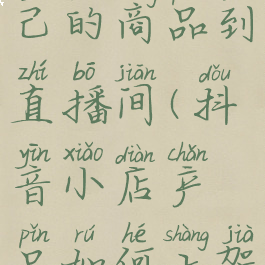 己的商品到
zhí bō jiān dǒu
直播间(抖
yīn xiǎo diàn chǎn
音小店产
pǐn rú hé shàng jià
品如何上架